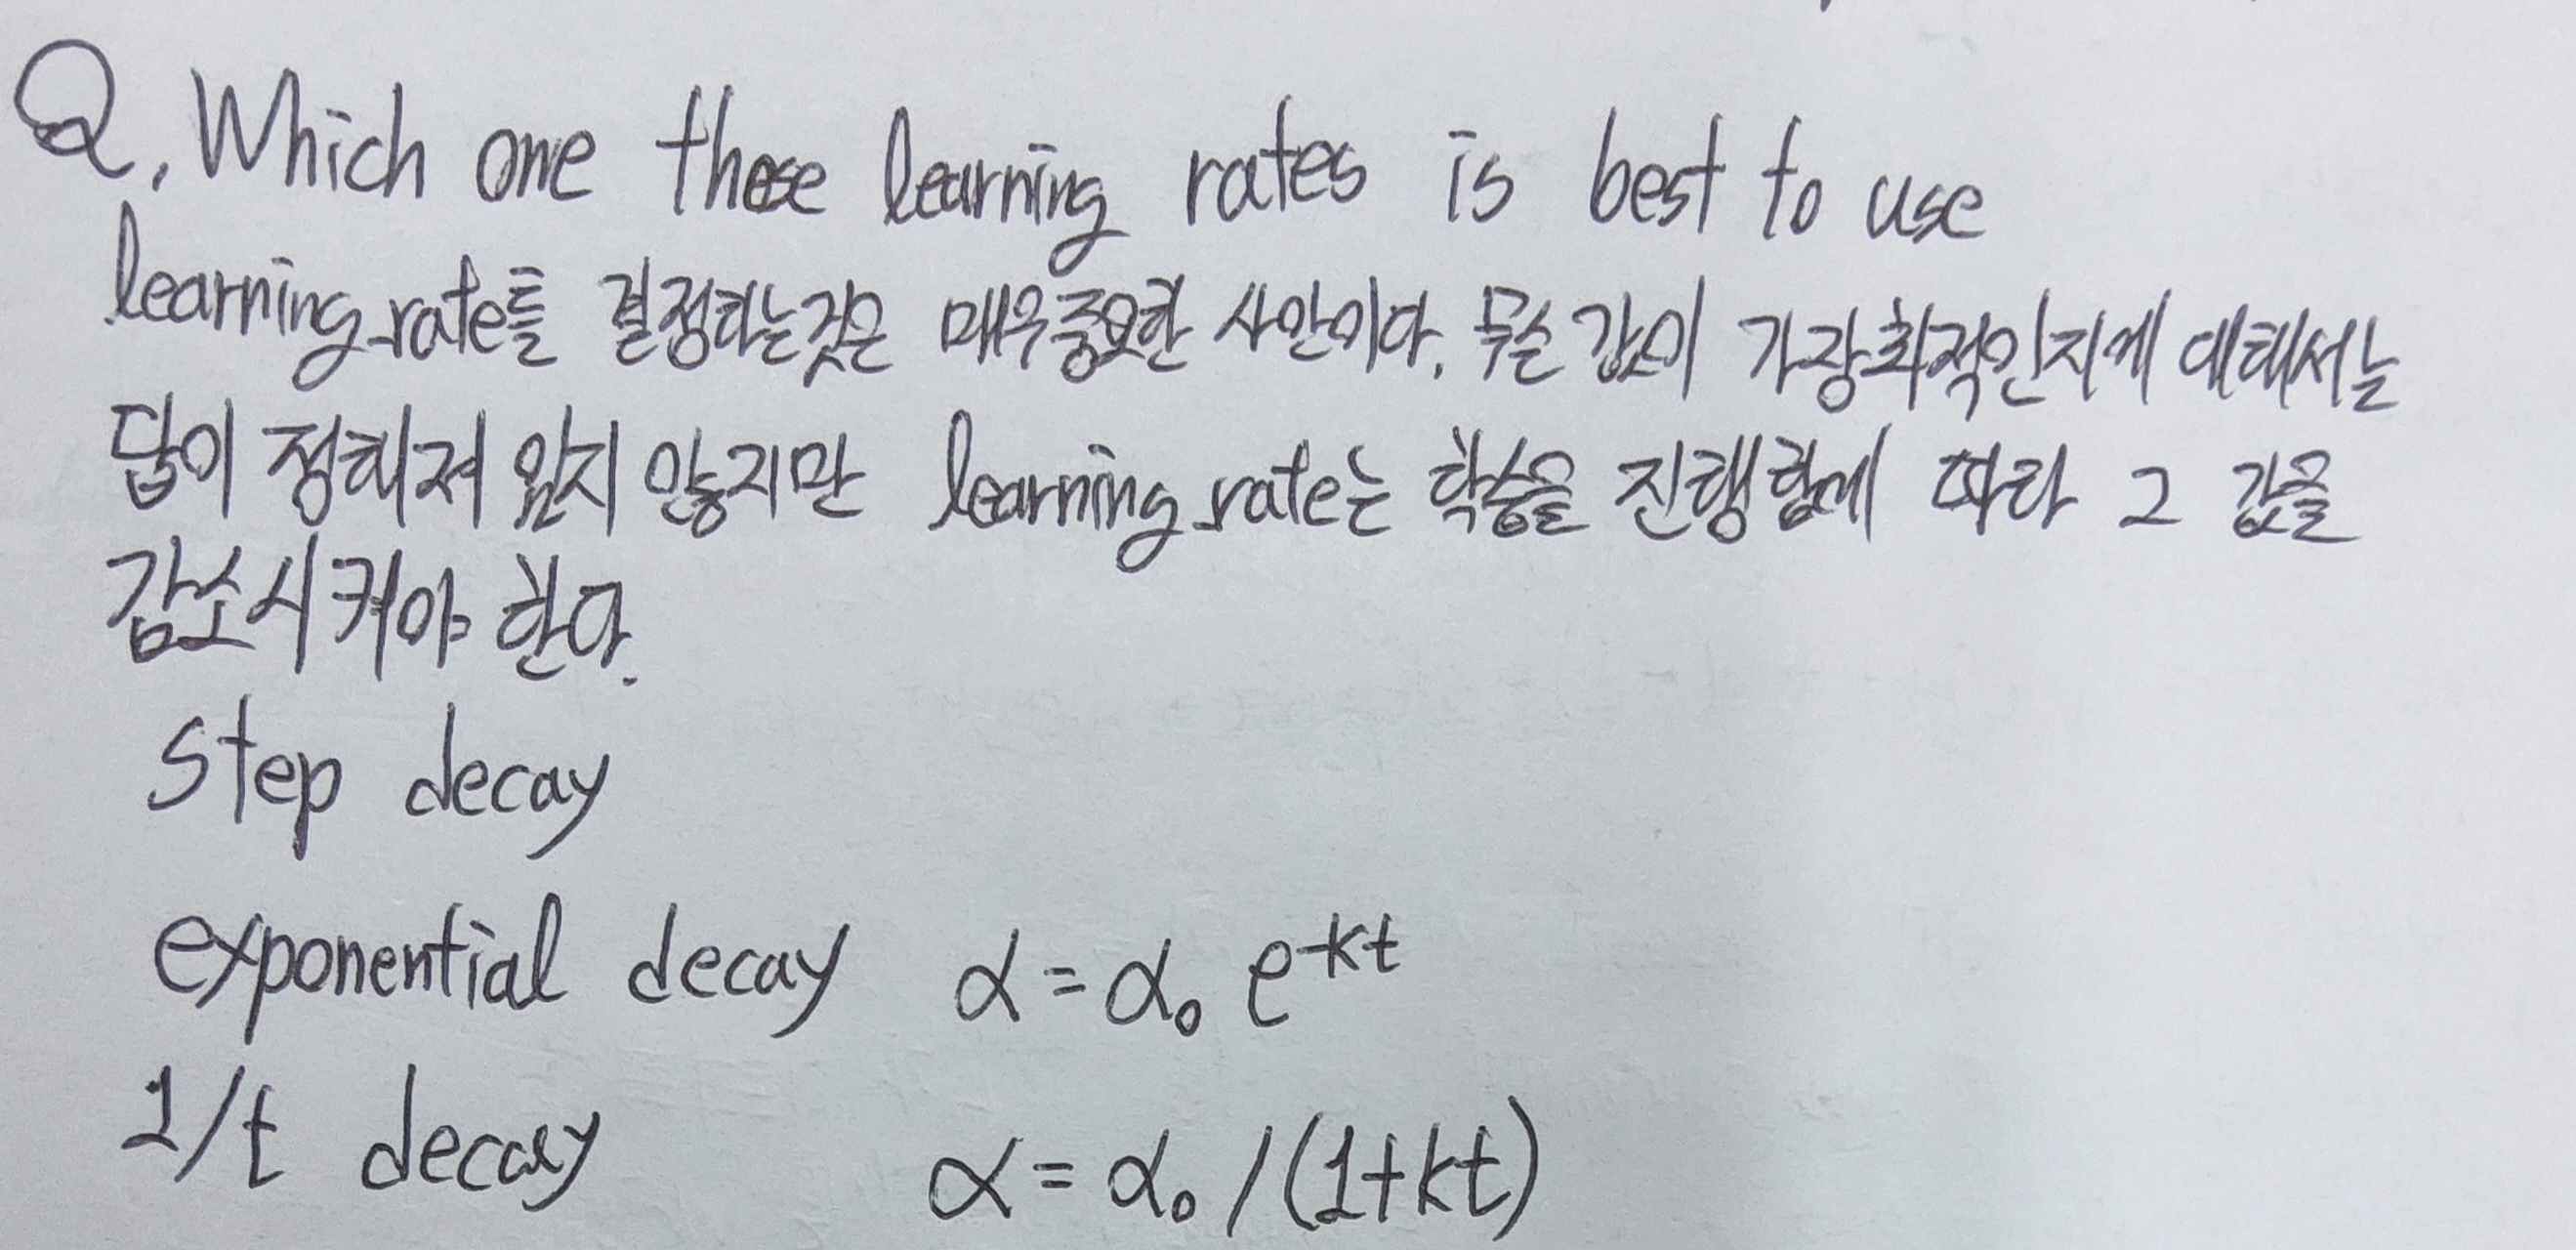 Q. Which one these learning rates is best to use
learning_rate를 결정하는것은 매우중요한 사안이다. 무슨 값이 가장최적인지에 대해서는
답이 정해져 있지 않지만 learning_rate는 학습을 진행함에 따라 그 값을
감소시켜야 한다.
step decay
exponential decay α = α₀ e^-kt
1/t decay α = α₀ / (1+kt)